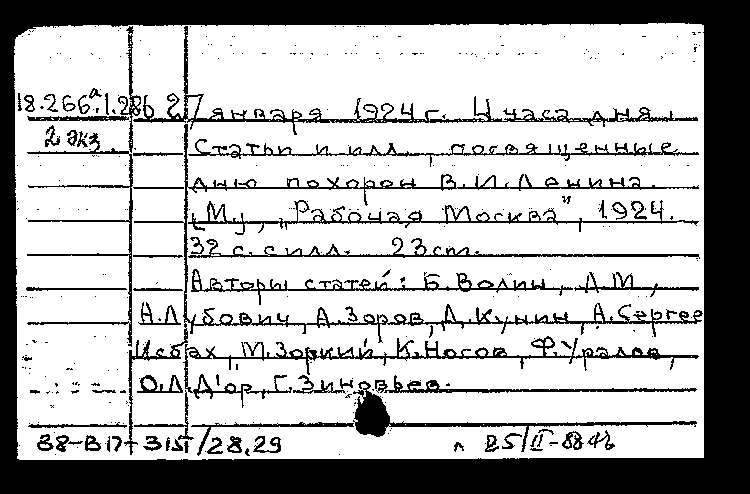 18.266а.1.286 27 января 1924 г. 4 часа дня.
2 экз. Статьи и илл., посвященные
дню похорон В.И.Ленина.
[М], "Рабочая Москва", 1924.
32 с. с илл. 23 см.
Авторы статей: Б.Волин, Д.М,
А.Лубович, А.Зоров, Д.Кунин, А.Сергее
Исбах, М.Зоркий, К.Носов, Ф.Уралов,
О.Л.Д'ор, Г.Зиновьев.
38-В17-315/28,29 25/II-88